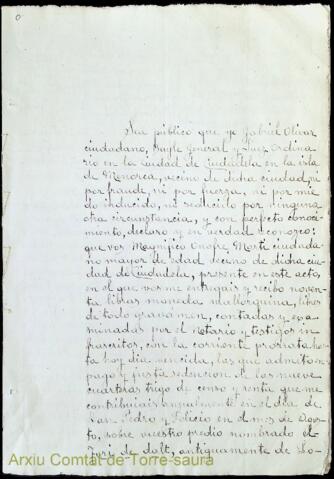 Sea público que yo Gabriel Olivar
ciudadano, Bayle General y Juez Ordina
rio en la ciudad de Ciudadela en la isla
de Menorca, vecino de dicha ciudad, ni
por fraude, ni por fuerza, ni por mie
do inducido, ni seducido por ninguna
otra circunstancia, y con perfecto conoci
miento, declaro y en verdad reconozco:
que vos Magnífico Onofre Martí ciudada
no mayor de edad vecino de dicha ciu
dad de Ciudadela, presente en este acto,
en el que vos me entregais y recibo noven
ta libras moneda mallorquina, libres
de todo gravámen, contadas y exa
minadas por el notario y testigos in
frascritos, con la corriente prorrata has
ta hoy dia vencida, las que admito en
pago y justa redencion de las nueve
cuarteras trigo de censo y renta que me
contribuiais anualmente en el dia de
San Pedro y Felicio en el mes de Agos
to, sobre vuestro predio nombrado el
de dalt, antiguamente de
Arxiu Comtal de Torre-saura